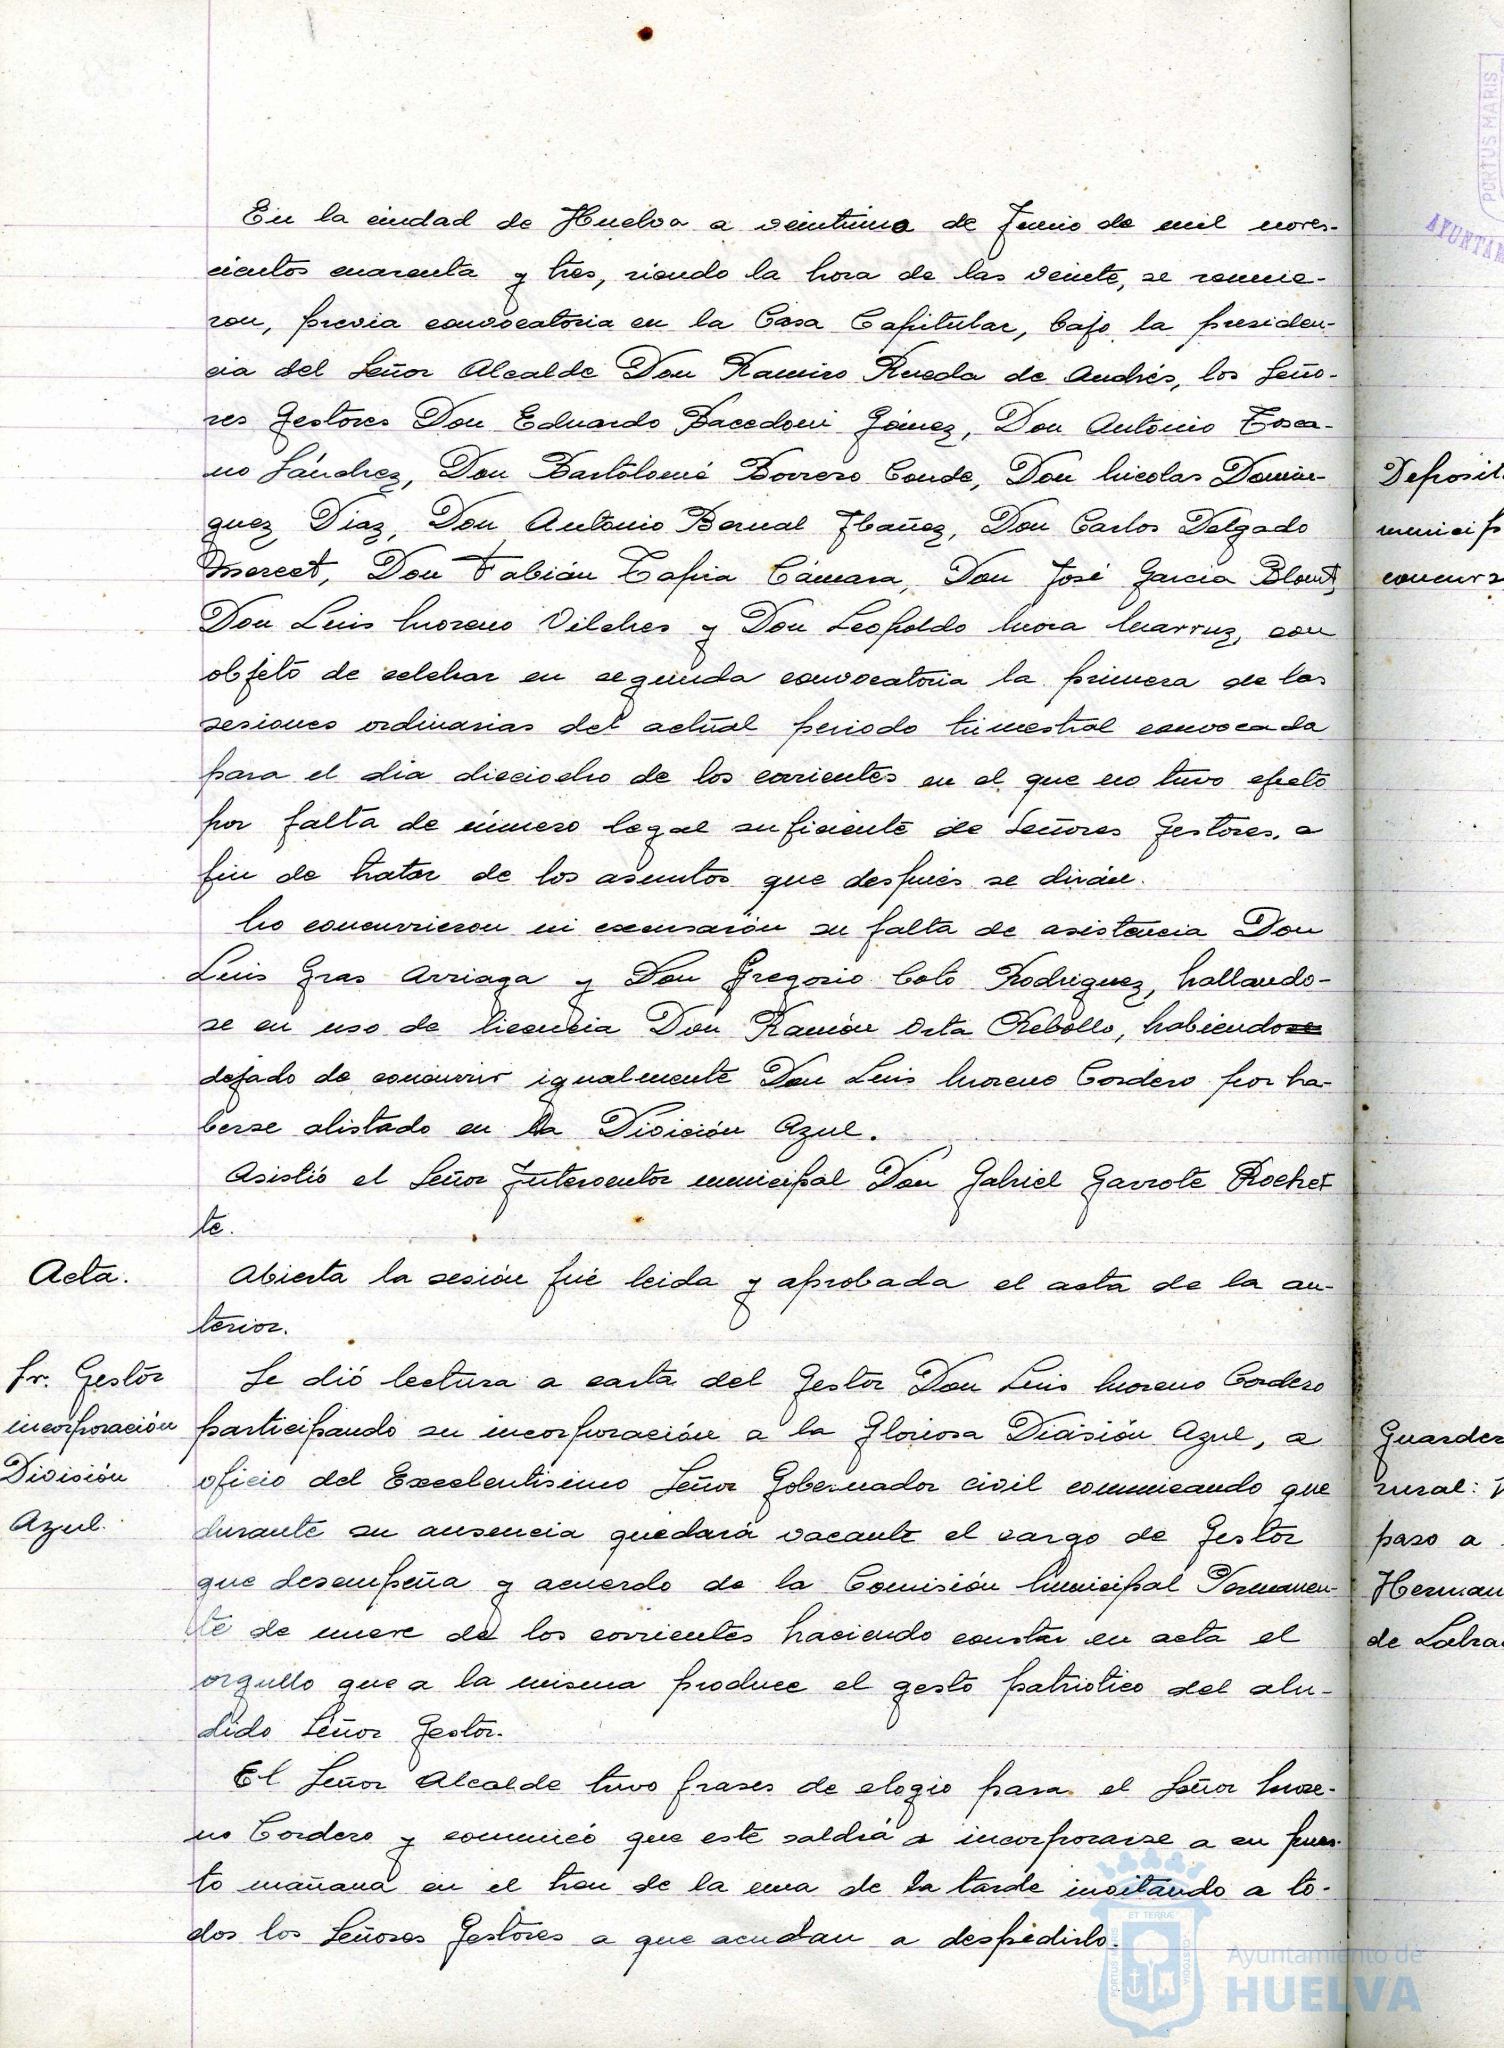 En la ciudad de Huelva a veintiuno de Junio de mil noves-
cientos cuarenta y tres, siendo la hora de las veinte, se reunie-
ron, previa convocatoria en la Casa Capitular, bajo la presiden-
cia del Señor Alcalde Don Ramiro Rueda de Andrés, los Seño-
res Gestores Don Eduardo Bacedoni Gómez, Don Antonio Tosca-
no Sánchez, Don Bartolomé Borrero Conde, Don Nicolas Domin-
guez Diaz, Don Antonio Bernal Ibañez, Don Carlos Delgado
Mercet, Don Fabián Tapia Cámara, Don José Garcia Blout,
Don Luis Moreno Vilches y Don Leopoldo Mora Marruz, con
objeto de celebrar en segunda convocatoria la primera de las
sesiones ordinarias del actual periodo trimestral convocada
para el dia dieciocho de los corrientes en el que no tuvo efecto
por falta de número legal suficiente de Señores Gestores, a
fin de tratar de los asuntos que después se dirán.
No concurrieron ni excusarón su falta de asistencia Don
Luis Gras Arriaga y Don Gregorio Coto Rodriguez, hallando-
se en uso de licencia Don Ramón Orta Rebollo, habiendose
dejado de concurrir igualmente Don Luis Moreno Cordero por ha-
berse alistado en la División Azul.
Asistió el Señor Interventor municipal Don Gabriel Garrote Rochet-
te.
Acta. Abierta la sesión fué leida y aprobada el acta de la an-
terior.
Sr. Gestor
incorporación
División
Azul.
Se dió lectura a carta del Gestor Don Luis Moreno Cordero
participando su incorporación a la Gloriosa División Azul, a
oficio del Excelentisimo Señor Gobernador civil comunicando que
durante su ausencia quedará vacante el cargo de Gestor
que desempeña y acuerdo de la Comisión Municipal Permanen-
te de nueve de los corrientes haciendo constar en acta el
orgullo que a la misma produce el gesto patriotico del alu-
dido Señor Gestor.
El Señor Alcalde tuvo frases de elogio para el Señor More-
no Cordero y comunicó que este saldrá a incorporarse a su pues-
to mañana en el tren de la una de la tarde invitando a to-
dos los Señores Gestores a que acudan a despedirlo.
Deposit
municip
concurs
Guarder
rural:
paso a
Herman
de Labra
PORTUS MARIS
AYUNTAM
Ayuntamiento de
HUELVA